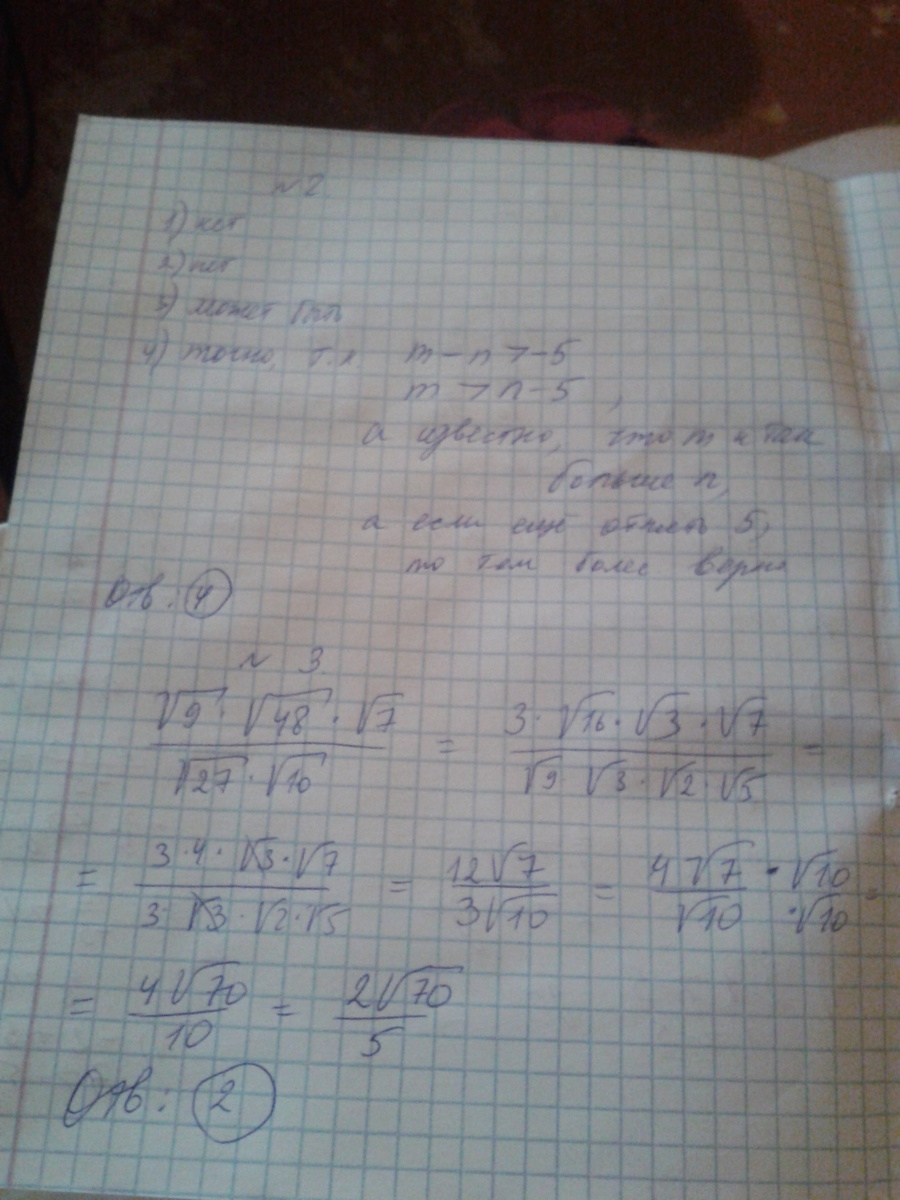 №2
1) нет
2) нет
3) может быть
4) точно, т.к m - n > -5
m > n - 5 ,
а известно, что m и так
больше n,
а если ещё отнять 5,
то тем более верно
Отв: 4
№ 3.
√9 · √48 · √7 / √27 · √10 = 3 · √16 · √3 · √7 / √9 √3 · √2 · √5 =
= 3 · 4 · √3 · √7 / 3 · √3 · √2 · √5 = 12√7 / 3√10 = 4√7 · √10 / √10 · √10 =
= 4√70 / 10 = 2√70 / 5
Отв: 2